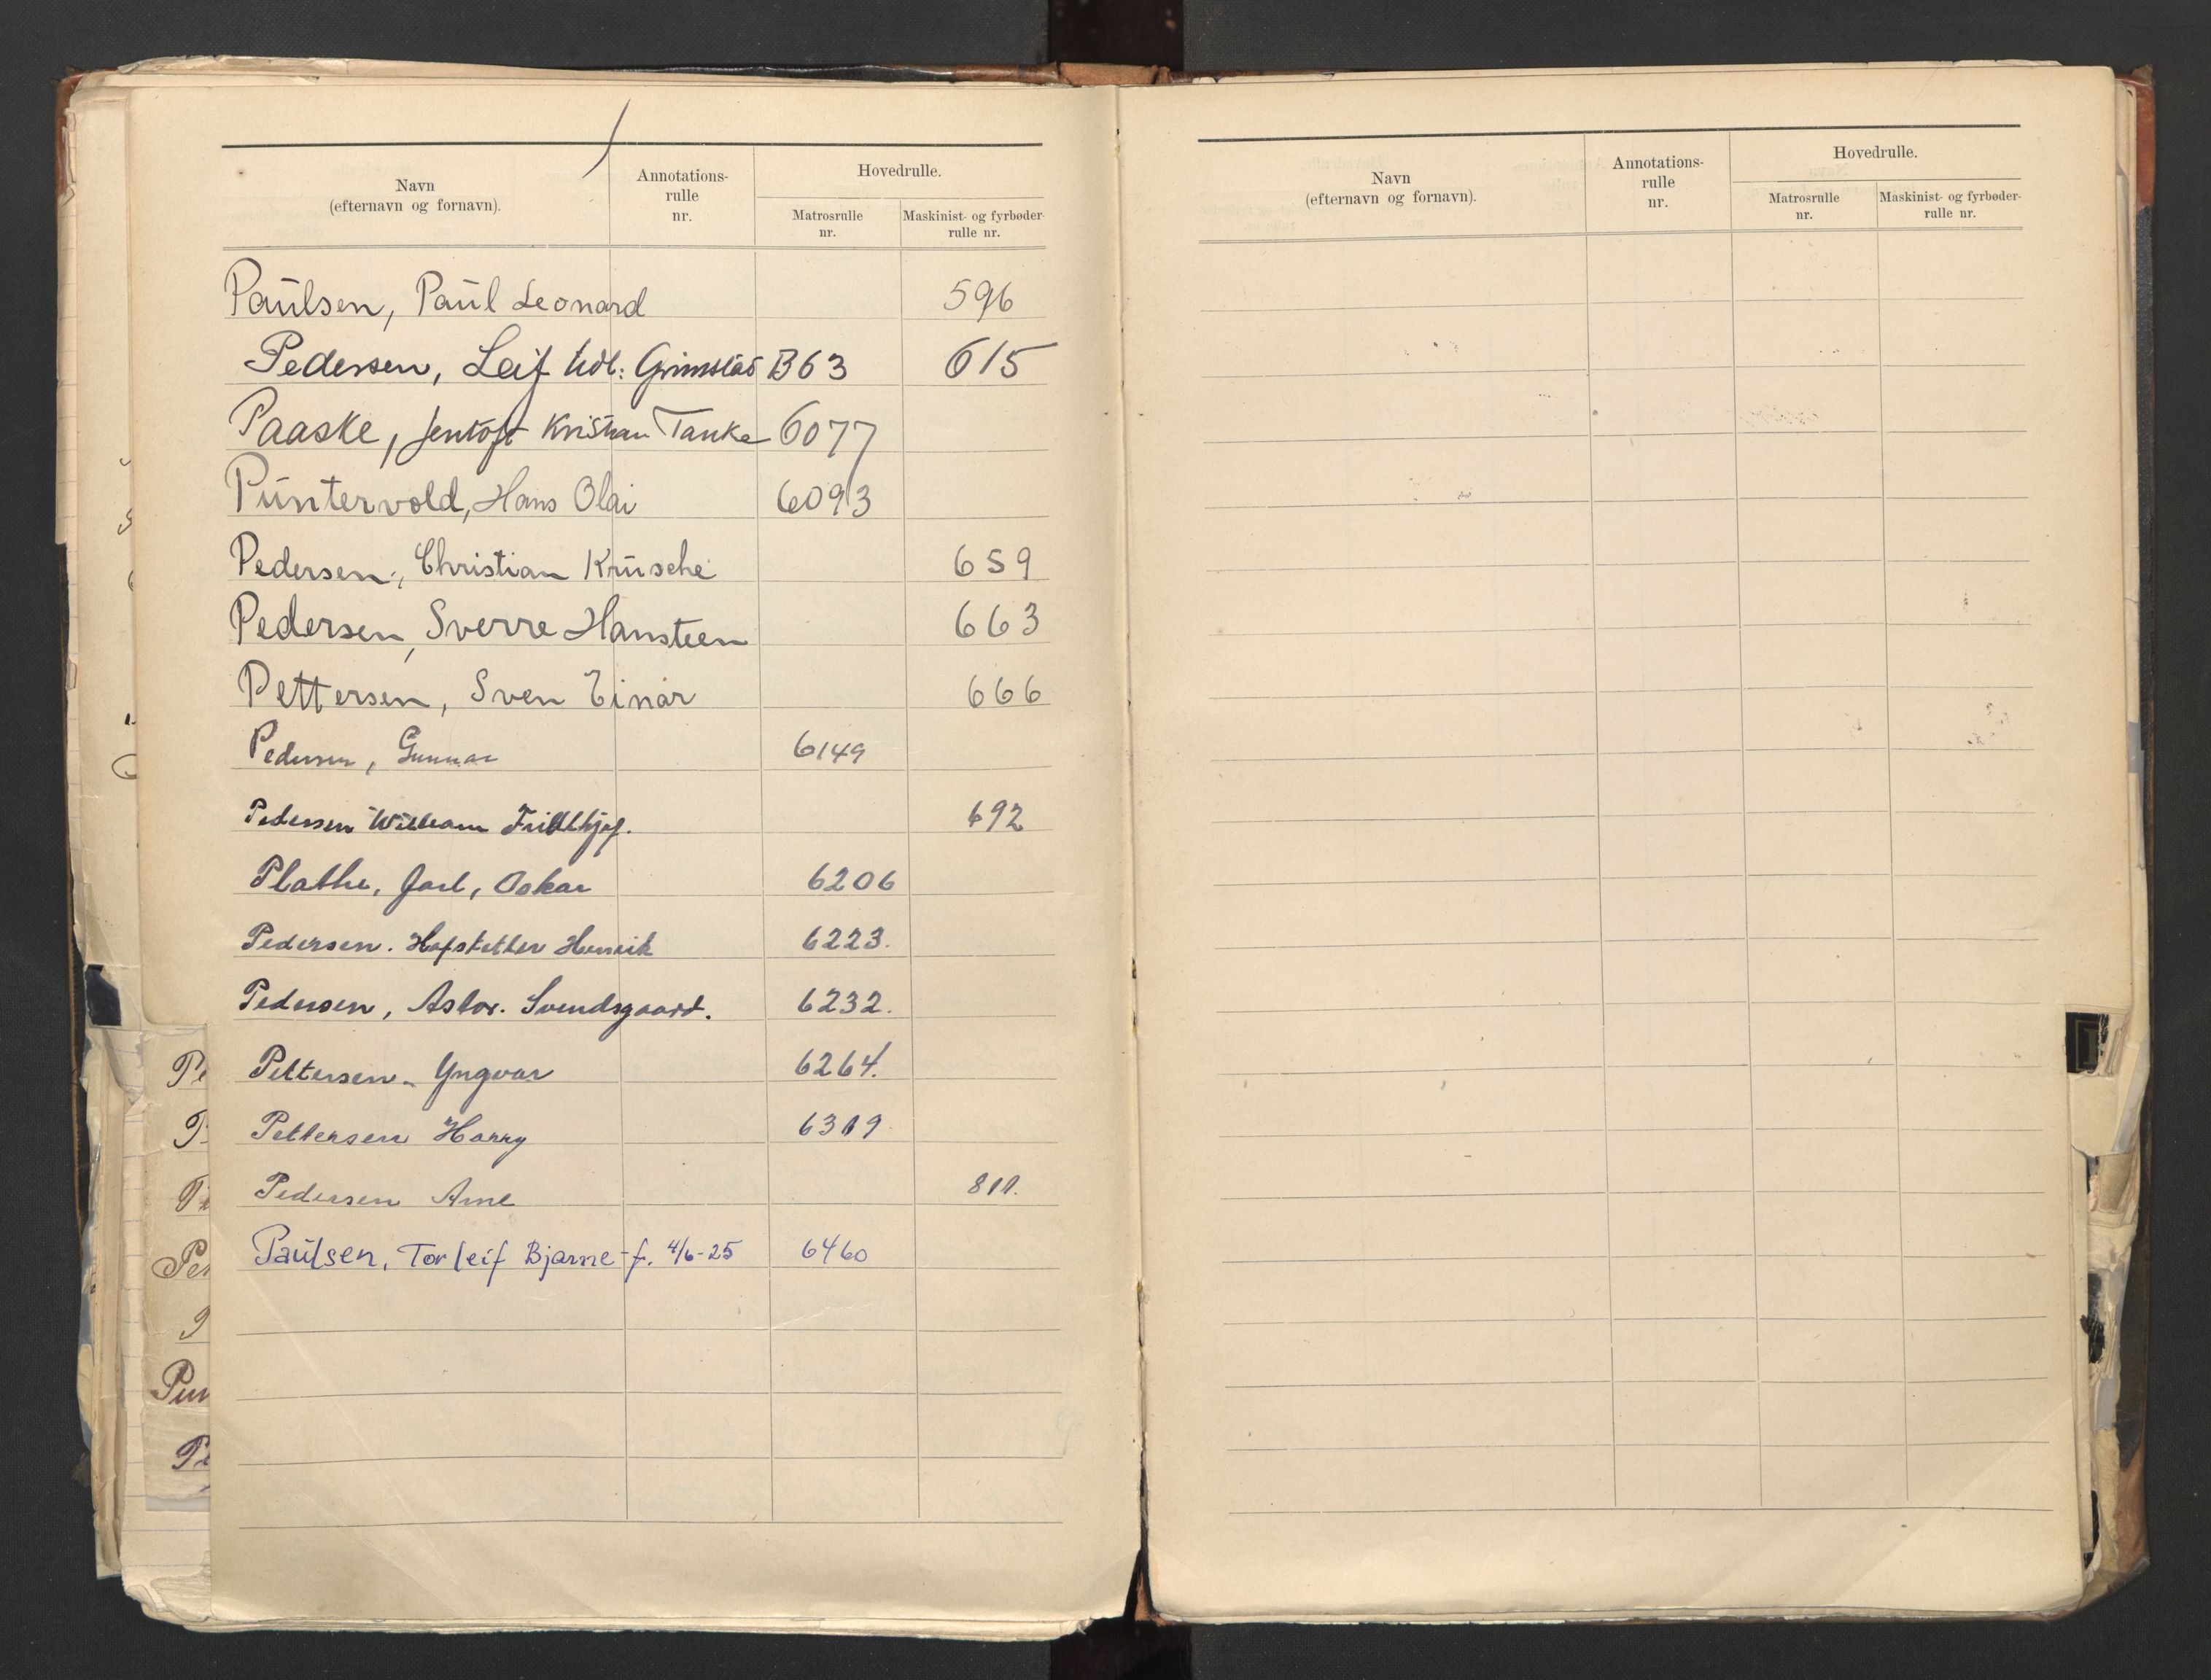 Navn
(efternavn og fornavn).
Annotations-
rulle
nr.
Hovedrulle.
Matrosrulle
nr.
Maskinist- og fyrbøder-
rulle nr.
Paulsen, Paul Leonard 596
Pedersen, Leif Udl: Grimstad B63 615
Paaske, Jentoft Kristian Tanke 6077
Puntervold, Hans Olai 6093
Pedersen, Christian Krusche 659
Pedersen, Sverre Hansteen 663
Pettersen, Sven Einar 666
Pedersen, Gunnar 6149
Pedersen William Fridthjof. 692
Plathe, Jarl, Oskar 6206
Pedersen. Hofstetter Henrik 6223.
Pedersen, Astor. Svendsgaard. 6232.
Pettersen - Yngvar 6264.
Pettersen Harry 6319
Pedersen Arne 811.
Paulsen, Torleif Bjarne - f. 4/6-25 6460
Navn
(efternavn og fornavn).
Annotations-
rulle
nr.
Hovedrulle.
Matrosrulle
nr.
Maskinist- og fyrbøder-
rulle nr.
Pe
P
Pe
Per
P
Pun
Pe